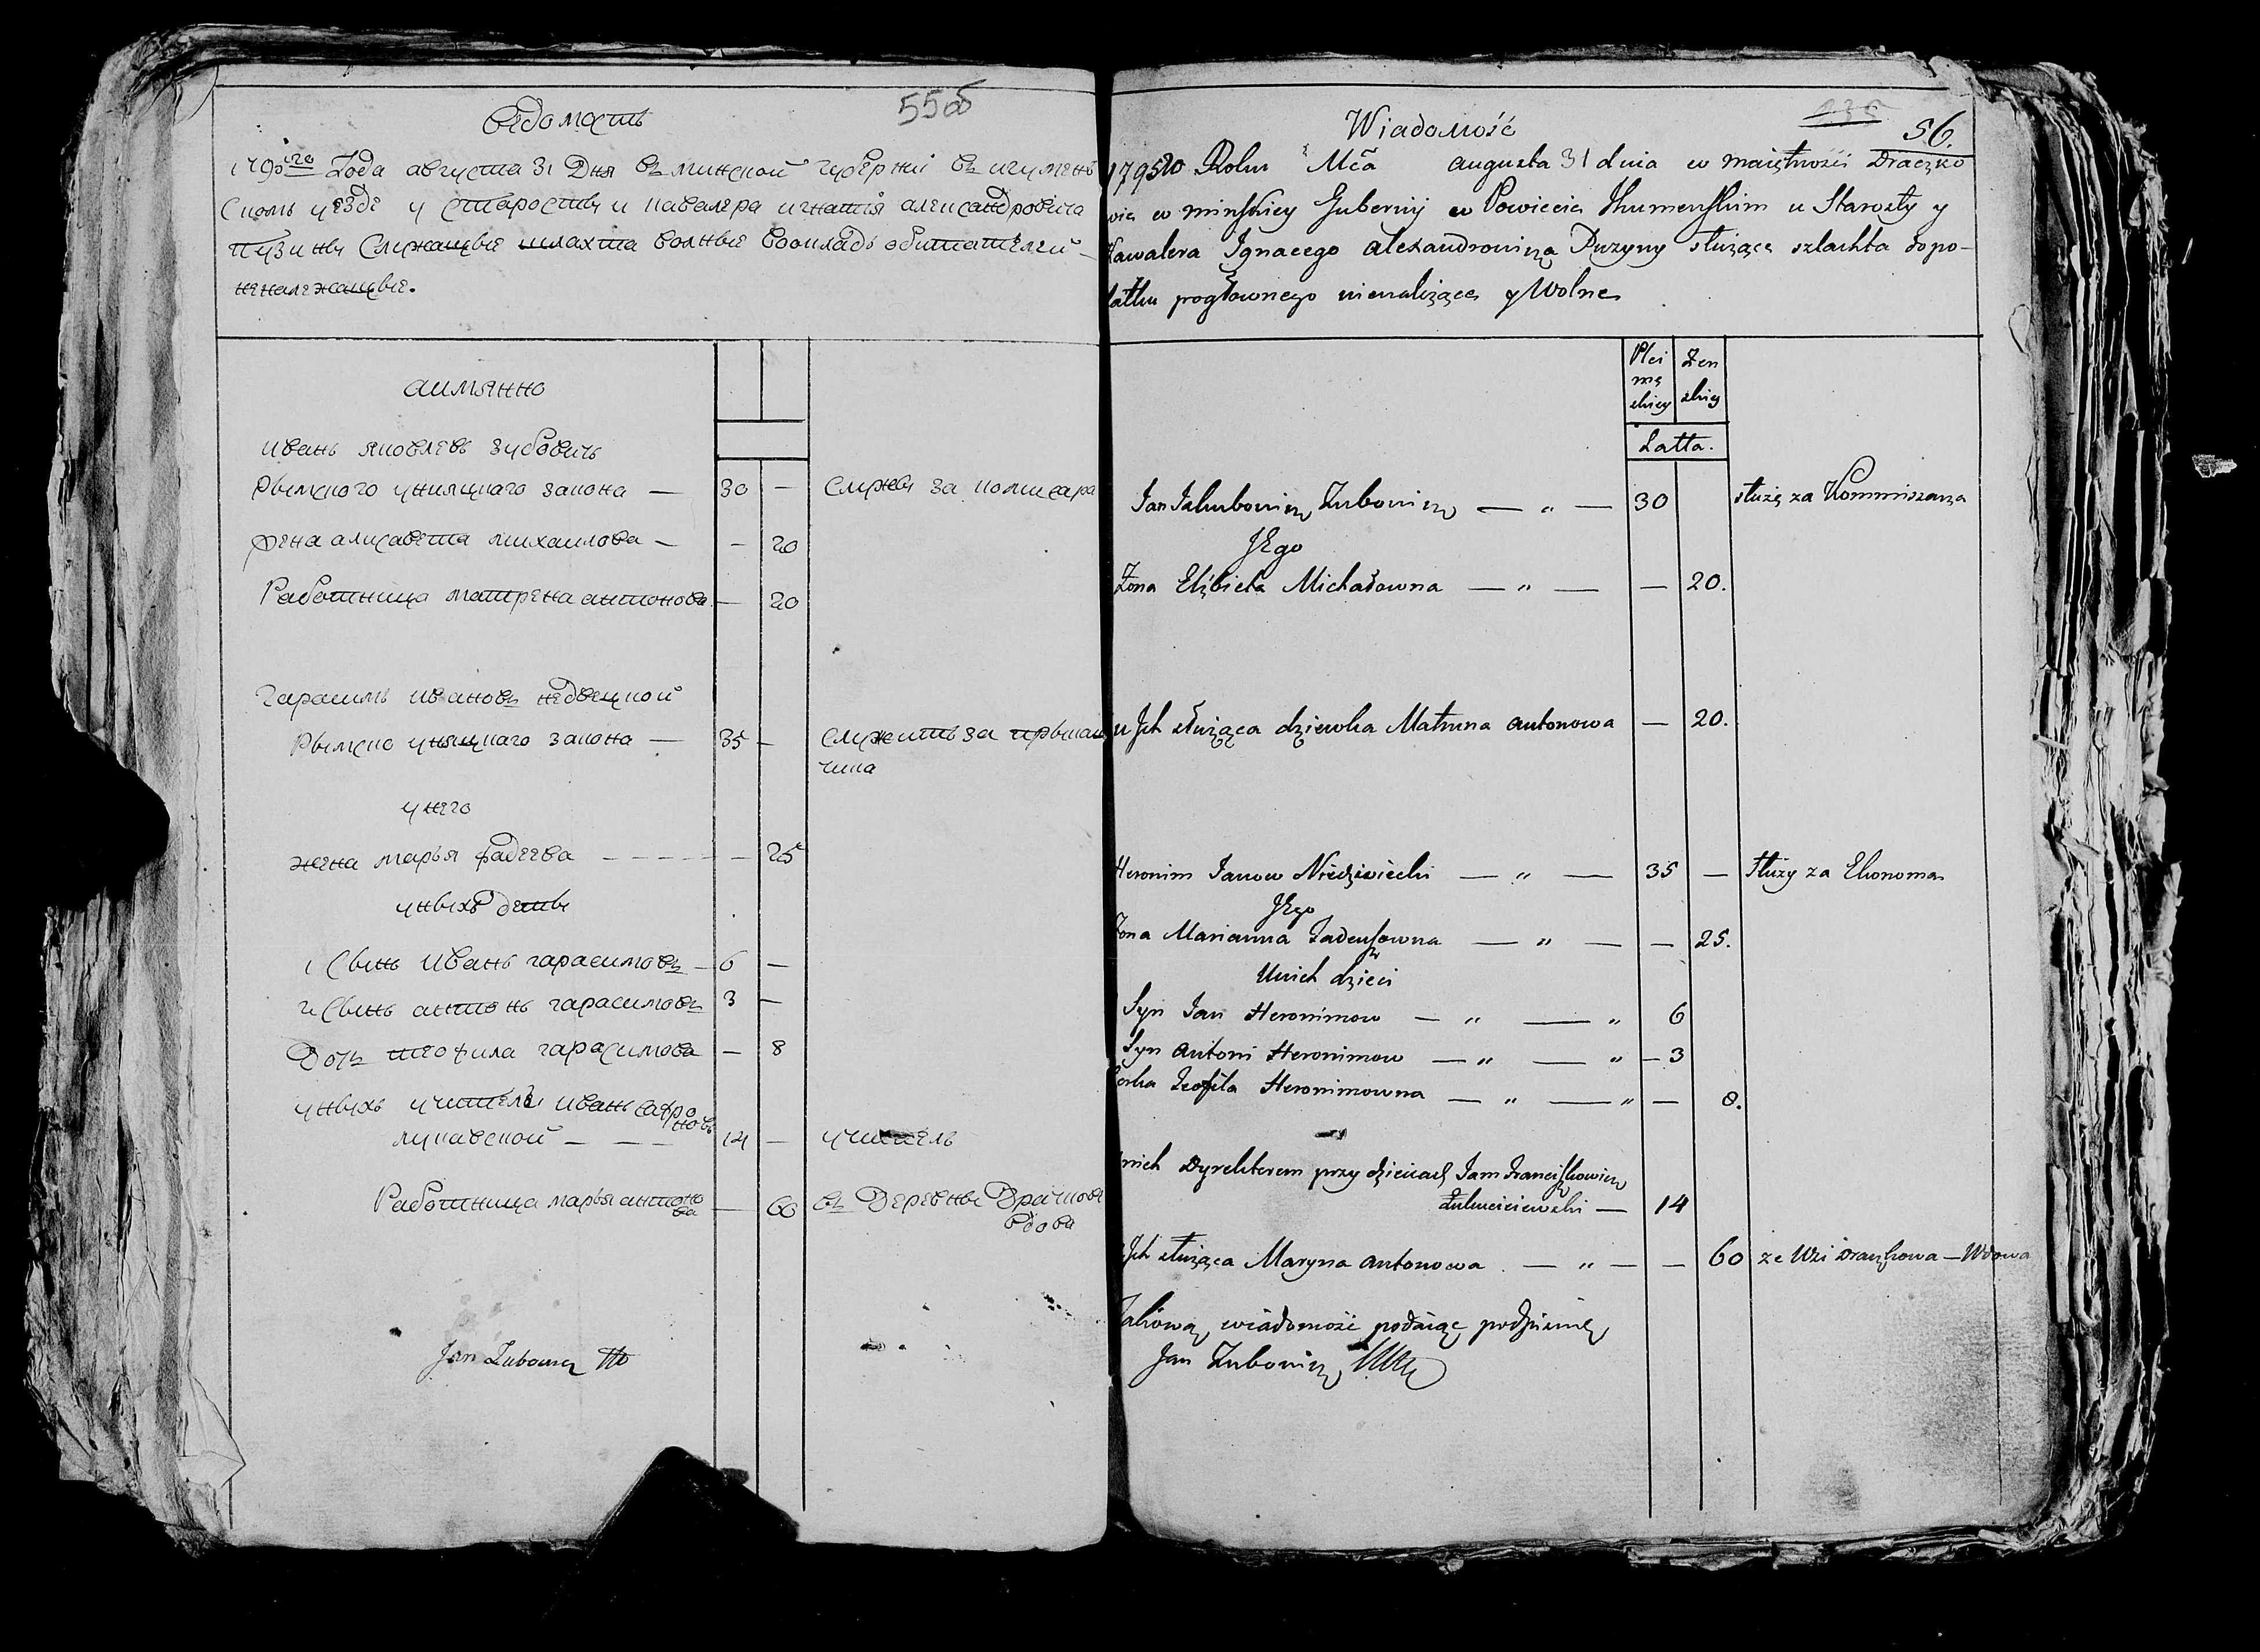 Ведомость
55об
1795го Года августа 31 Дня въ минской губерніи въ игумень
скомъ уезде у старосты и кавалера игнатія александровича
пузины служащые шлахта волные вооклады обитателей
неналежащые.
аимянно
иванъ яковлевъ зубовичъ
Рымского унияцкаго закона — 30 — служы за комисара
жена алисавета михаилова — — 20
Работница матрена антонова — 20
Гарасимъ ивановъ недвецкой
Рымско уняцкаго закона — 35 — служить за прыка
чика
у него
жена марья фадеева — — 25
уныхъ дети
1 Сынъ иванъ гарасимовъ — 6 —
2 Сынъ антонъ гарасимовъ 3 —
Дочъ теофила гарасимова — 8
уныхъ учитель иванъ
14 — учитель
Работница марья антоно
ва — 60 въ Деревны Драчкове
вдова
Jan Zubowicz
Wiadomość
56.
179520 Roku Mca augusta 31 dnia w maiętności Draczko
wie w minskiey Gubernij w Powiecie Ihumenskim u Starosty y
Kawalera Ignacego alexandrowicza Puzyny służąca szlachta dopo-
datku pogłownego nienależąca y Wolne
Płci
mę
skiey
Żen
skiey
Latta.
Jan Jakubowicz Zubowicz — „ — 30 służę za Kommissarza
JEgo
Żona Elżbieta Michałowna — „ — — 20.
u Jch służąca dziewka Matruna antonowa — 20.
Heronim Janow Niedzwiecki — „ — 35 — służy za Ekonoma
JEgo
Żona Marianna Tadeuszowna — „ — — 25.
Unich dzieci
Syn Jan Heronimow — „ — „ 6
Syn antoni Heronimow — „ — „ — 3
Corka Teofila Heronimowna — „ — „ — 8.
unich Dyrektorem przy dzieciach Jam Franciszkowicz
— 14
u Jch służąca Maryna antonowa — „ — — 60 ze Wsi Draczkowa — Wdowa
Takową wiadomość podaiąc podpisuię
Jan Zubowicz